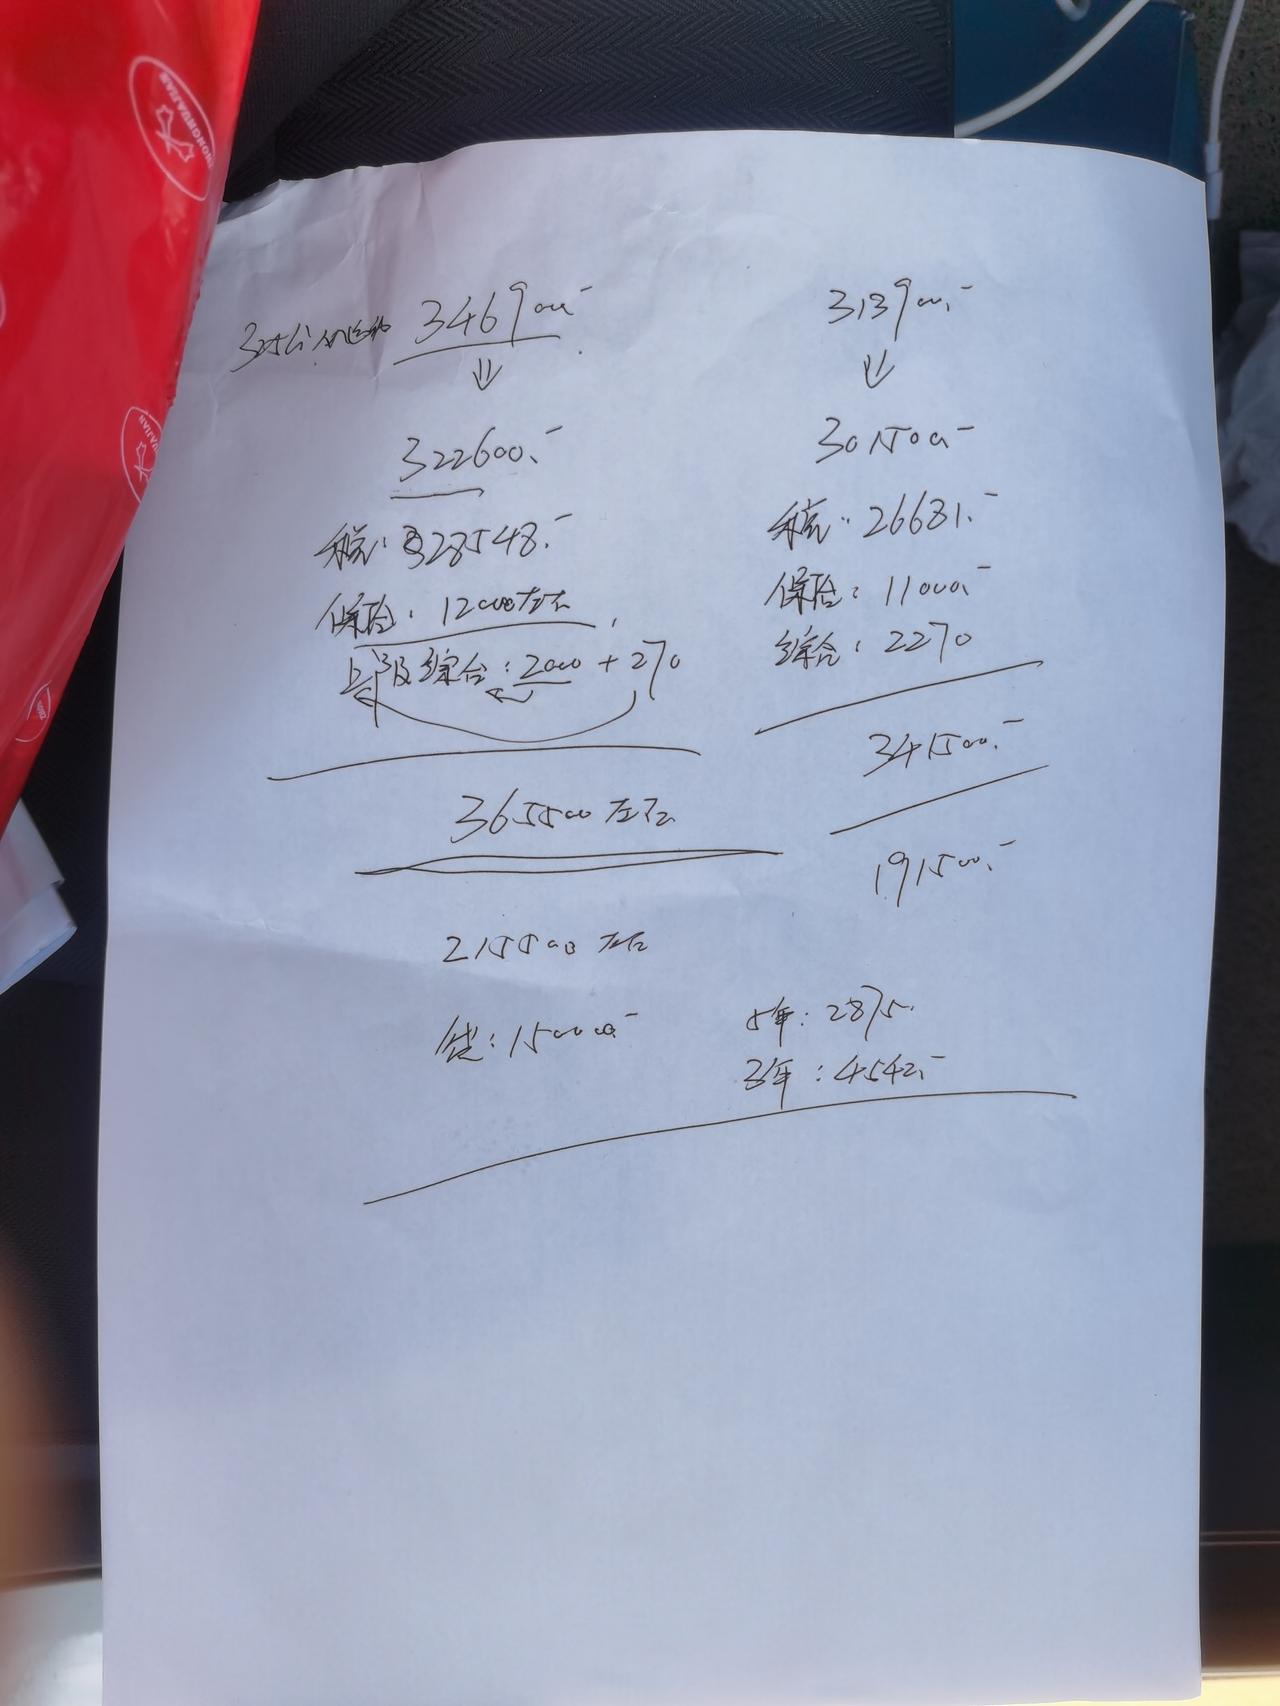 346900.-
322600.-
税: 28548.-
保险: 12000左右
上牌 综合: 2000 + 270
365500 左右
215500 左右
贷: 150000.-
313900.-
301500.-
税: 26681.-
保险: 11000.-
综合: 2270
341500.-
191500.-
5年: 2875.
3年: 4542.-